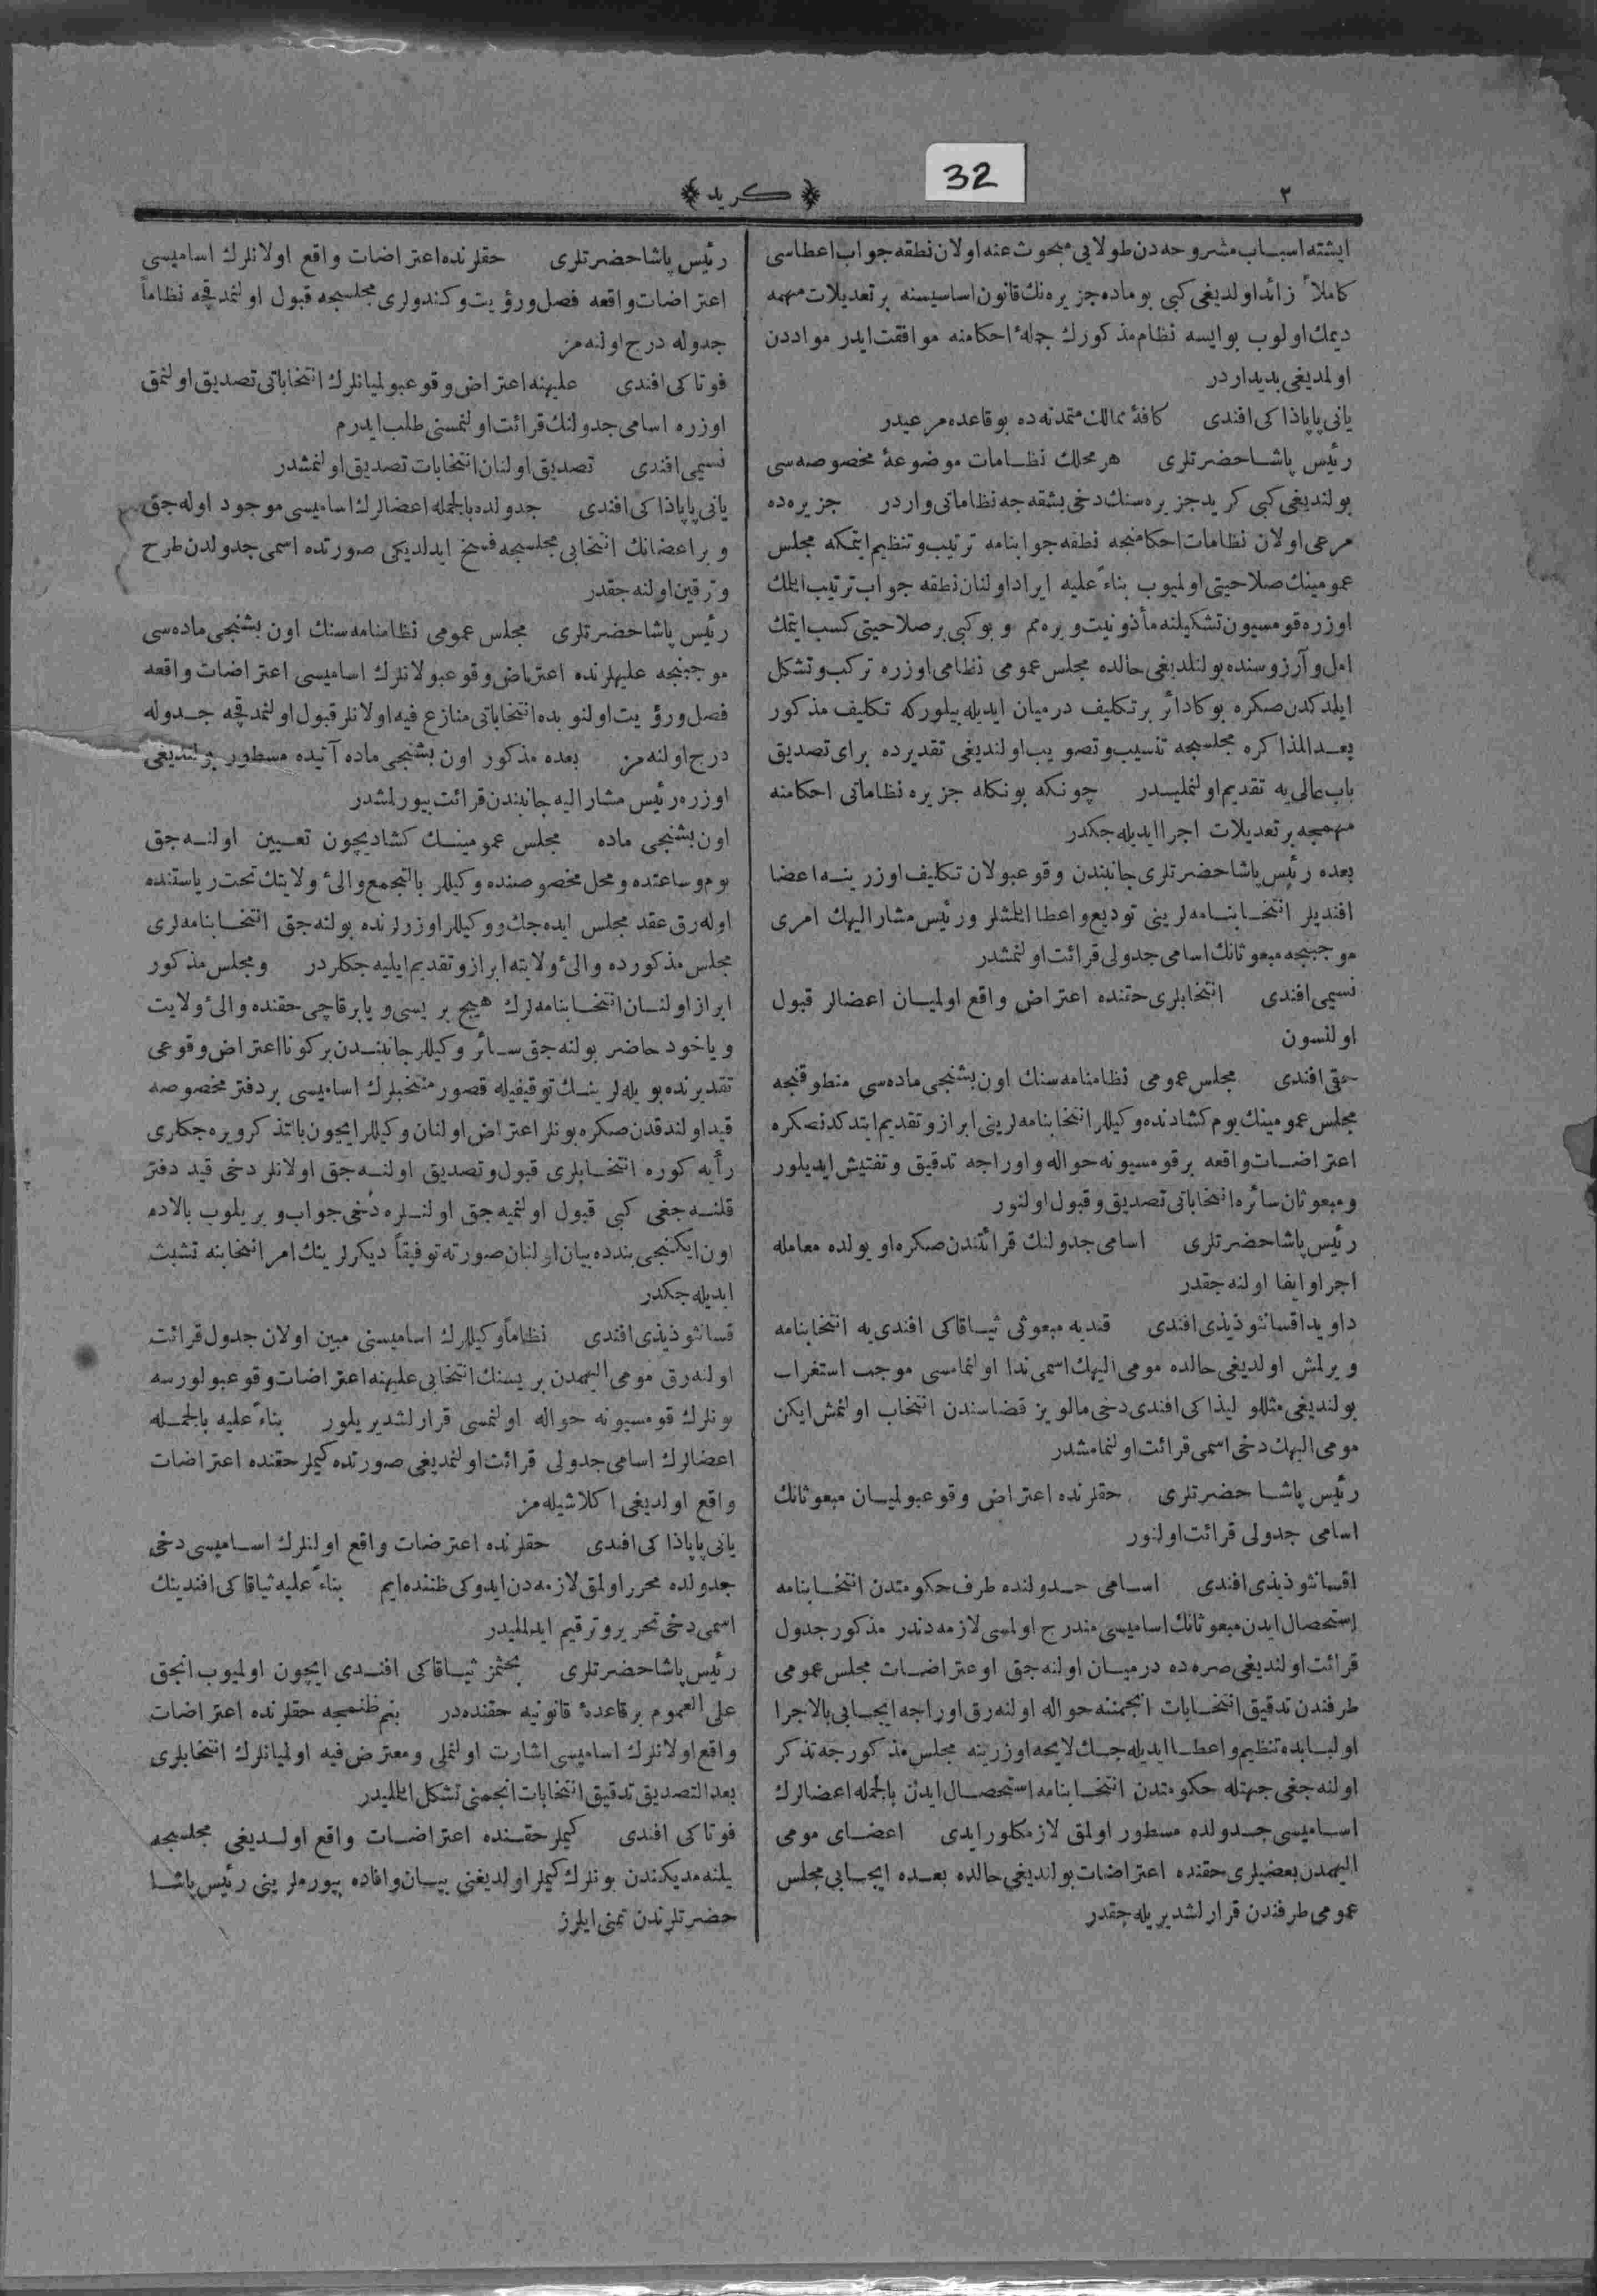 32
٢
﴿ كريد ﴾
ايشته اسباب مشروحه دن طولايى مبحوث عنه اولان نطقه جواب اعطاسى
كاملاً زائد اولديغى كبى بو ماده جزيره نك قانون اساسيسنه بر تعديلات مهمه
ديمك اولوب بو ايسه نظام مذكورك جملهٔ احكامنه موافقت ايدر موادد‌ن
اولمديغى بديدار در
يانى پاپاذاكى افندى كافهٔ ممالك متمدنه ده بو قاعده مرعيدر
رئيس پاشا حضرتلرى هر محلك نظامات موضوعهٔ مخصوصه سى
بولنديغى كبى كريد جزيره سنك دخى بشقه جه نظاماتى واردر جزيره ده
مرعى اولان نظامات احكامنجه نطقه جوابنامه ترتيب و تنظيم ايتمكه مجلس
عمومينك صلاحيتى اولميوب بناءً عليه ايراد اولنان نطقه جواب ترتيب ايلمك
اوزره قومسيون تشكيلنه مأذونيت ويره مم و بو كبى بر صلاحيتى كسب ايتمك
امل و آرزوسنده بولنلديغى حالده مجلس عمومى نظامى اوزره تركب و تشكل
ايلدكدن صكره بوكا دائر بر تكليف درميان ايديله بيلوركه تكليف مذكور
بعد المذاكره مجلسجه تنسيب و تصويب اولنديغى تقديرده براى تصديق
باب عالى يه تقديم اولنمليدر چونكه بونكله جزيره نظاماتى احكامنه
مهمجه بر تعديلات اجرا ايديله جكدر
بعده رئيس پاشا حضرتلرى جانبندن وقوعبولان تكليف اوزرينه اعضا
افنديلر انتخابنامه لرينى توديع و اعطا ايلمشلر و رئيس مشار اليهك امرى
موجبنجه مبعوثانك اسامى جدولى قرائت اولنمشدر
نسيمى افندى انتخابلرى حقنده اعتراض واقع اولميان اعضالر قبول
اولنسون
حقى افندى مجلس عمومى نظامنامه سنك اون بشنجى ماده سى منطوقنجه
مجلس عمومينك يوم كشادنده وكيللر انتخابنامه لرينى ابراز و تقديم ايتدكدنصكره
اعتراضات واقعه بر قومسيونه حواله و اوراجه تدقيق و تفتيش ايديلور
و مبعوثان سائره انتخاباتى تصديق و قبول اولنور
رئيس پاشا حضرتلرى اسامى جدولنك قرائتندن صكره او يولده معامله
اجرا و ايفا اولنه جقدر
داويد اقسانثوذيذى افندى قنديه مبعوثى ثياقاكى افندى يه انتخابنامه
ويرلمش اولديغى حالده مومى اليهك اسمى ندا اولنمامسى موجب استغراب
بولنديغى مثللو ليذاكى افندى دخى مالويز قضاسندن انتخاب اولنمش ايكن
مومى اليهك دخى اسمى قرائت اولنمامشدر
رئيس پاشا حضرتلرى حقلرنده اعتراض وقوعبولميان مبعوثانك
اسامى جدولى قرائت اولنور
اقسانثوذيذى افندى اسامى جدولنده طرف حكومتدن انتخابنامه
استحصال ايدن مبعوثانك اساميسى مندرج اولمسى لازمه دندر مذكور جدول
قرائت اولنديغى صره ده درميان اولنه جق اوعتراضات مجلس عمومى
طرفندن تدقيق انتخابات انجمننه حواله اولنه رق اوراجه ايجابى بالاجرا
اولبابده تنظيم و اعطا ايديله جك لايحه اوزرينه مجلس مذكورجه تذكر
اولنه جغى جهتله حكومتدن انتخابنامه استحصال ايدن بالجمله اعضالرك
اساميسى جدولده مسطور اولمق لازمكلور ايدى اعضاى مومى
اليهمدن بعضيلرى حقنده اعتراضات بولنديغى حالده بعده ايجابى مجلس
عمومى طرفندن قرارلشديريله جقدر
رئيس پاشا حضرتلرى حقلرنده اعتراضات واقع اولانلرك اساميسى
اعتراضات واقعه فصل و رؤيت و كندولرى مجلسجه قبول اولنمدقجه نظاماً
جدوله درج اولنه مز
فوتاكى افندى عليهنه اعتراض وقوعبولميانلرك انتخاباتى تصديق اولنمق
اوزره اسامى جدولنك قرائت اولنمسنى طلب ايدرم
نسيمى افندى تصديق اولنان انتخابات تصديق اولنمشدر
يانى پاپاذاكى افندى جدولده بالجمله اعضالرك اساميسى موجود اوله جق
و بر اعضانك انتخابى مجلسجه فسخ ايدلديكى صورتده اسمى جدولدن طرح
و ترقين اولنه جقدر
رئيس پاشا حضرتلرى مجلس عمومى نظامنامه سنك اون بشنجى ماده سى
موجبنجه عليهلرنده اعتراض وقوعبولانلرك اساميسى اعتراضات واقعه
فصل و رؤيت اولنوبده انتخاباتى منازع فيه اولانلر قبول اولنمدقجه جدوله
درج اولنه مز بعده مذكور اون بشنجى ماده آتيده مسطور بولنديغى
اوزره رئيس مشار اليه جانبندن قرائت بيورلمشدر
اون بشنجى ماده مجلس عمومينك كشاديچون تعيين اولنه جق
يوم و ساعتده و محل مخصوصنده وكيللر بالتجمع والئ ولايتك تحت رياستنده
اوله رق عقد مجلس ايده جك و وكيللر اوزرلرنده بولنه جق انتخابنامه لرى
مجلس مذكورده والئ ولايته ابراز و تقديم ايليه جكلردر و مجلس مذكور
ابراز اولنان انتخابنامه لرك هيچ بريسى و يا برقاچى حقنده والئ ولايت
و ياخود حاضر بولنه جق سائر وكيللر جانبندن بر كونا اعتراض وقوعى
تقديرنده بويله لرينك توقيفيله قصور منتخبلرك اساميسى بر دفتر مخصوصه
قيد اولندقدن صكره بونلر اعتراض اولنان وكيللر ايچون بالتذكر ويره جكلرى
رأيه كوره انتخابلرى قبول و تصديق اولنه جق اولانلر دخى قيد دفتر
قلنه جغى كبى قبول اولنميه جق اولنلره دخى جواب ويريلوب بالاده
اون ايكنجى بندده بيان اولنان صورته توفيقاً ديكرلرينك امر انتخابنه تشبث
ايديله جكدر
قسانثوذيذى افندى نظاماً وكيللرك اساميسنى مبين اولان جدول قرائت
اولنه رق مومى اليهمدن بريسنك انتخابى عليهنه اعتراضات وقوعبولورسه
بونلرك قومسيونه حواله اولنمسى قرارلشديريلور بناءً عليه بالجمله
اعضالرك اسامى جدولى قرائت اولنمديغى صورتده كيملر حقنده اعتراضات
واقع اولديغى اكلاشيله مز
يانى پاپاذاكى افندى حقلرنده اعترضات واقع اولنلرك اساميسى دخى
جدولده محرر اولمق لازمه دن ايدوكى ظننده ايم بناءً عليه ثياقاكى افندينك
اسمى دخى تحرير و ترقيم ايدلمليدر
رئيس پاشا حضرتلرى بحثمز ثياقاكى افندى ايچون اولميوب انجق
على العموم بر قاعدهٔ قانونيه حقنده در بنم ظنمجه حقلرنده اعتراضات
واقع اولانلرك اساميسى اشارت اولنملى و معترض فيه اولميانلرك انتخابلرى
بعد التصديق تدقيق انتخابات انجمنى تشكل ايلمليدر
فوتاكى افندى كيملر حقنده اعتراضات واقع اولديغى مجلسجه
بيلنه مديكندن بونلرك كيملر اولديغنى بيان و افاده بيورملرينى رئيس پاشا
حضرتلرندن تمنى ايلرز